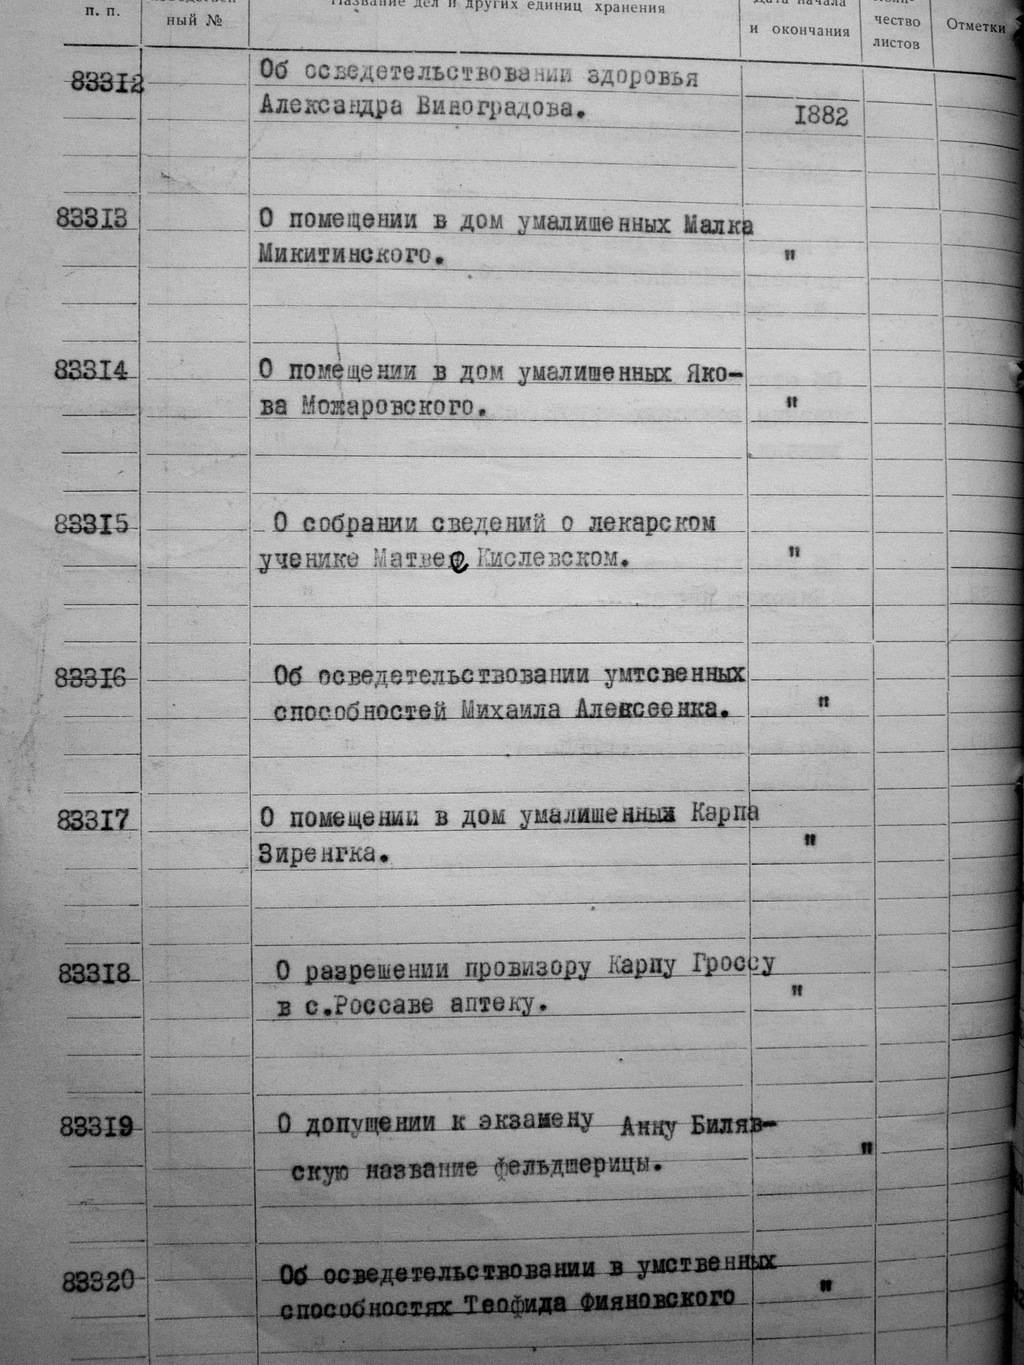 п. п.
ный №
Название дел и других единиц хранения
Дата начала
и окончания
чество
листов
Отметки
83312
Об осведетельствовании здоровья
Александра Виноградова.
1882
83313
О помещении в дом умалишенных Малка
Микитинского.
"
83314
О помещении в дом умалишенных Яко-
ва Можаровского.
"
83315
О собрании сведений о лекарском
ученике Матвее Кислевском.
"
83316
Об осведетельствовании умтсвенных
способностей Михаила Алексеенка.
"
83317
О помещении в дом умалишенных Карпа
Зиренгка.
"
83318
О разрешении провизору Карпу Гроссу
в с.Россаве аптеку.
"
83319
О допущении к экзамену Анну Биляв-
скую название фельдшерицы.
"
83320
Об осведетельствовании в умственных
способностях Теофида Фияновского
"